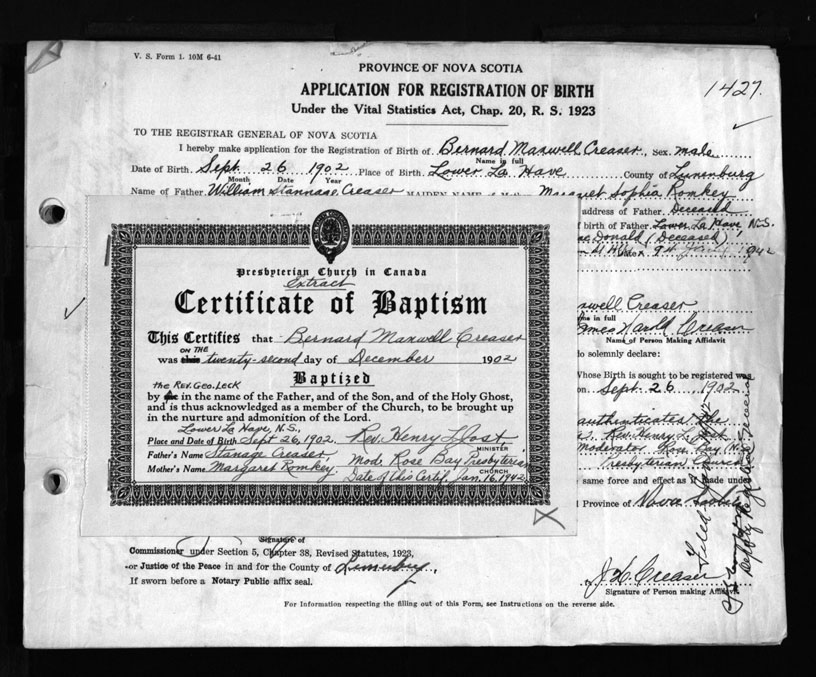 V. S. Form 1. 10M 6-41
PROVINCE OF NOVA SCOTIA
APPLICATION FOR REGISTRATION OF BIRTH
Under the Vital Statistics Act, Chap. 20, R. S. 1923
1427.
TO THE REGISTRAR GENERAL OF NOVA SCOTIA
I hereby make application for the Registration of Birth of Bernard Maxwell Creaser, Sex male
Name in full
Date of Birth Sept 26 1902 Place of Birth Lower La Have County of Lunenburg
Month Date Year
Name of Father William Stannage Creaser MAIDEN NAME Margaret Sophia Romkey
address of Father Deceased
birth of Father Lower La Have N.S.
Donald (Deceased)
Date 1942
Presbyterian Church in Canada
Extract
Certificate of Baptism
This Certifies that Bernard Maxwell Creaser
was on the twenty-second day of December 1902
Baptized
the Rev. Geo. Leck
by in the name of the Father, and of the Son, and of the Holy Ghost,
and is thus acknowledged as a member of the Church, to be brought up
in the nurture and admonition of the Lord.
Lower La Have, N.S.,
Place and Date of Birth Sept 26, 1902. Rev. Henry L Jost
MINISTER
Father's Name Stanage Creaser Mod. Rose Bay Presbyterian
CHURCH
Mother's Name Margaret Romkey. Date of this Certif. Jan. 16, 1942
Maxwell Creaser
in full
James Harold Creaser
Name of Person Making Affidavit
do solemnly declare:
Whose Birth is sought to be registered was
on Sept 26 1902
authenticates the
Rev. Henry L. Jost
Moderator Rose Bay N.S.
Presbyterian Church
same force and effect as if made under
Province of Nova Scotia
Signature of
Commissioner under Section 5, Chapter 38, Revised Statutes, 1923,
or Justice of the Peace in and for the County of Lunenburg.
If sworn before a Notary Public affix seal.
J. H. Creaser
Signature of Person making Affidavit
For Information respecting the filling out of this Form, see Instructions on the reverse side.
Filed
Deputy Registrar General